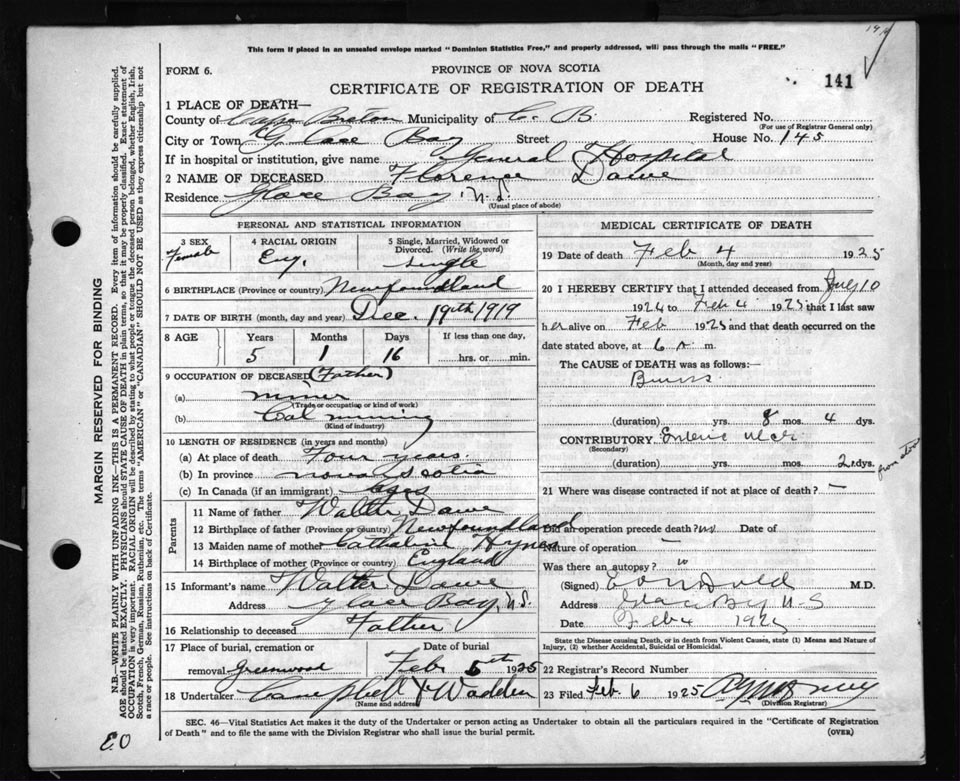 This form if placed in an unsealed envelope marked "Dominion Statistics Free," and properly addressed, will pass through the mails "FREE."
FORM 6.
PROVINCE OF NOVA SCOTIA
CERTIFICATE OF REGISTRATION OF DEATH
141
1 PLACE OF DEATH—
County of Cape Breton Municipality of C. B. Registered No.
(For use of Registrar General only)
City or Town Glace Bay Street House No. 145
If in hospital or institution, give name General Hospital
2 NAME OF DECEASED Florence Dawe
Residence Glace Bay, N.S.
(Usual place of abode)
PERSONAL AND STATISTICAL INFORMATION
3 SEX Female
4 RACIAL ORIGIN Eng.
5 Single, Married, Widowed or Divorced. (Write the word) single
6 BIRTHPLACE (Province or country) Newfoundland
7 DATE OF BIRTH (month, day and year) Dec. 19th 1919
8 AGE Years Months Days If less than one day,
5 1 16 hrs. or min.
9 OCCUPATION OF DECEASED (Father)
(a) miner
(Trade or occupation or kind of work)
(b) Coal mining
(Kind of industry)
10 LENGTH OF RESIDENCE (in years and months)
(a) At place of death Four years.
(b) In province Nova Scotia
(c) In Canada (if an immigrant)
Parents
11 Name of father Walter Dawe
12 Birthplace of father (Province or country) Newfoundland
13 Maiden name of mother Catherine Hynes
14 Birthplace of mother (Province or country) England
15 Informant's name Walter Dawe
Address Glace Bay, N.S.
16 Relationship to deceased Father
17 Place of burial, cremation or Date of burial
removal Greenwood Feb 5th 1925
18 Undertaker Campbell & Wadden
(Name and address)
MEDICAL CERTIFICATE OF DEATH
19 Date of death Feb 4 1925
(Month, day and year)
20 I HEREBY CERTIFY that I attended deceased from July 10
1924 to Feb 4 1925 that I last saw
her alive on Feb 1925 and that death occurred on the
date stated above, at 6 a m.
The CAUSE of DEATH was as follows:—
Burns
(duration) yrs. 8 mos. 4 dys.
CONTRIBUTORY
(Secondary)
(duration) yrs. mos. dys.
21 Where was disease contracted if not at place of death? —
Did an operation precede death? no Date of
Nature of operation —
Was there an autopsy?
(Signed) M.D.
Address Glace Bay N.S
Date Feb 4 1925
State the Disease causing Death, or in death from Violent Causes, state (1) Means and Nature of Injury, (2) whether Accidental, Suicidal or Homicidal.
22 Registrar's Record Number
23 Filed Feb. 6 1925
(Division Registrar)
SEC. 46—Vital Statistics Act makes it the duty of the Undertaker or person acting as Undertaker to obtain all the particulars required in the "Certificate of Registration
of Death" and to file the same with the Division Registrar who shall issue the burial permit. (OVER)
MARGIN RESERVED FOR BINDING
N.B.—WRITE PLAINLY WITH UNFADING INK—THIS IS A PERMANENT RECORD. Every item of information should be carefully supplied.
AGE should be stated EXACTLY. PHYSICIANS should STATE CAUSE OF DEATH in plain terms, so that it may be properly classified. Exact statement of
OCCUPATION is very important. RACIAL ORIGIN will be described by stating to what people or tongue the deceased person belonged, whether English, Irish,
Scotch, French, German, Russian, Ruthenian, etc. The terms "AMERICAN" or "CANADIAN" SHOULD NOT BE USED as they express citizenship but not
a race or people. See instructions on back of Certificate.
EO